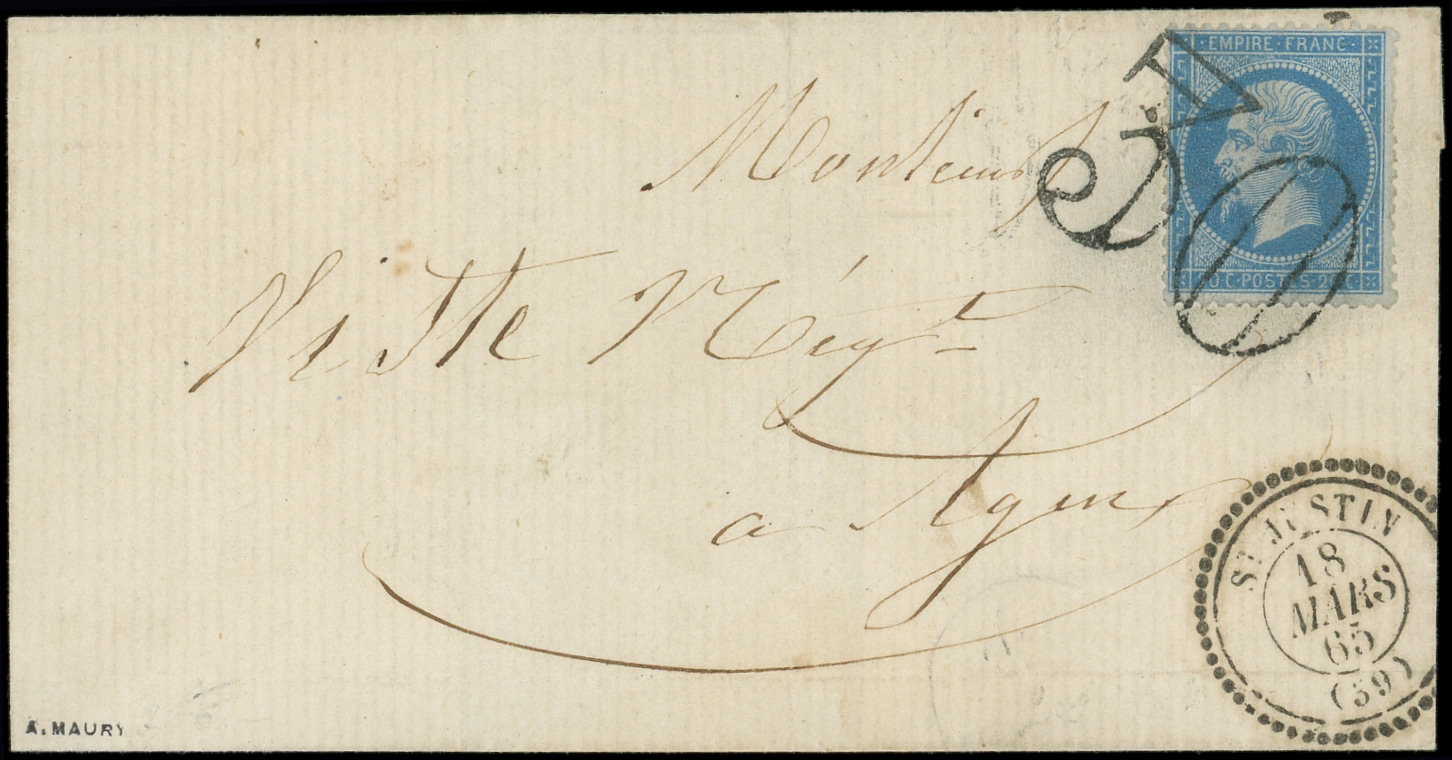 EMPIRE FRANC
A
20
20 C·POSTES·20 C
Monsieur
Viste Négt
a Agen
ST JUSTIN
18
MARS
65
(39)
A. MAURY